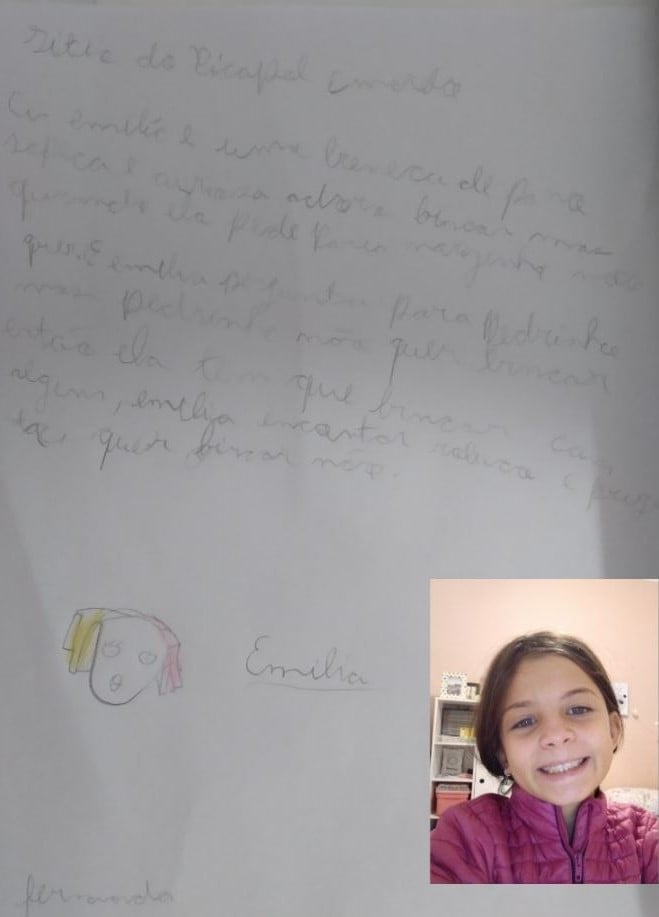 Sitio do Picapal amarelo
emilia é uma boneca de pano
sapeca e curiosa adora brincar mas
quando ela pede para narizinho não
quer. E emilia pergunta para Pedrinho
mas Pedrinho não quer brincar
então ela tem que brincar com
alguem, emilia
quer não.
Emilia
fernanda